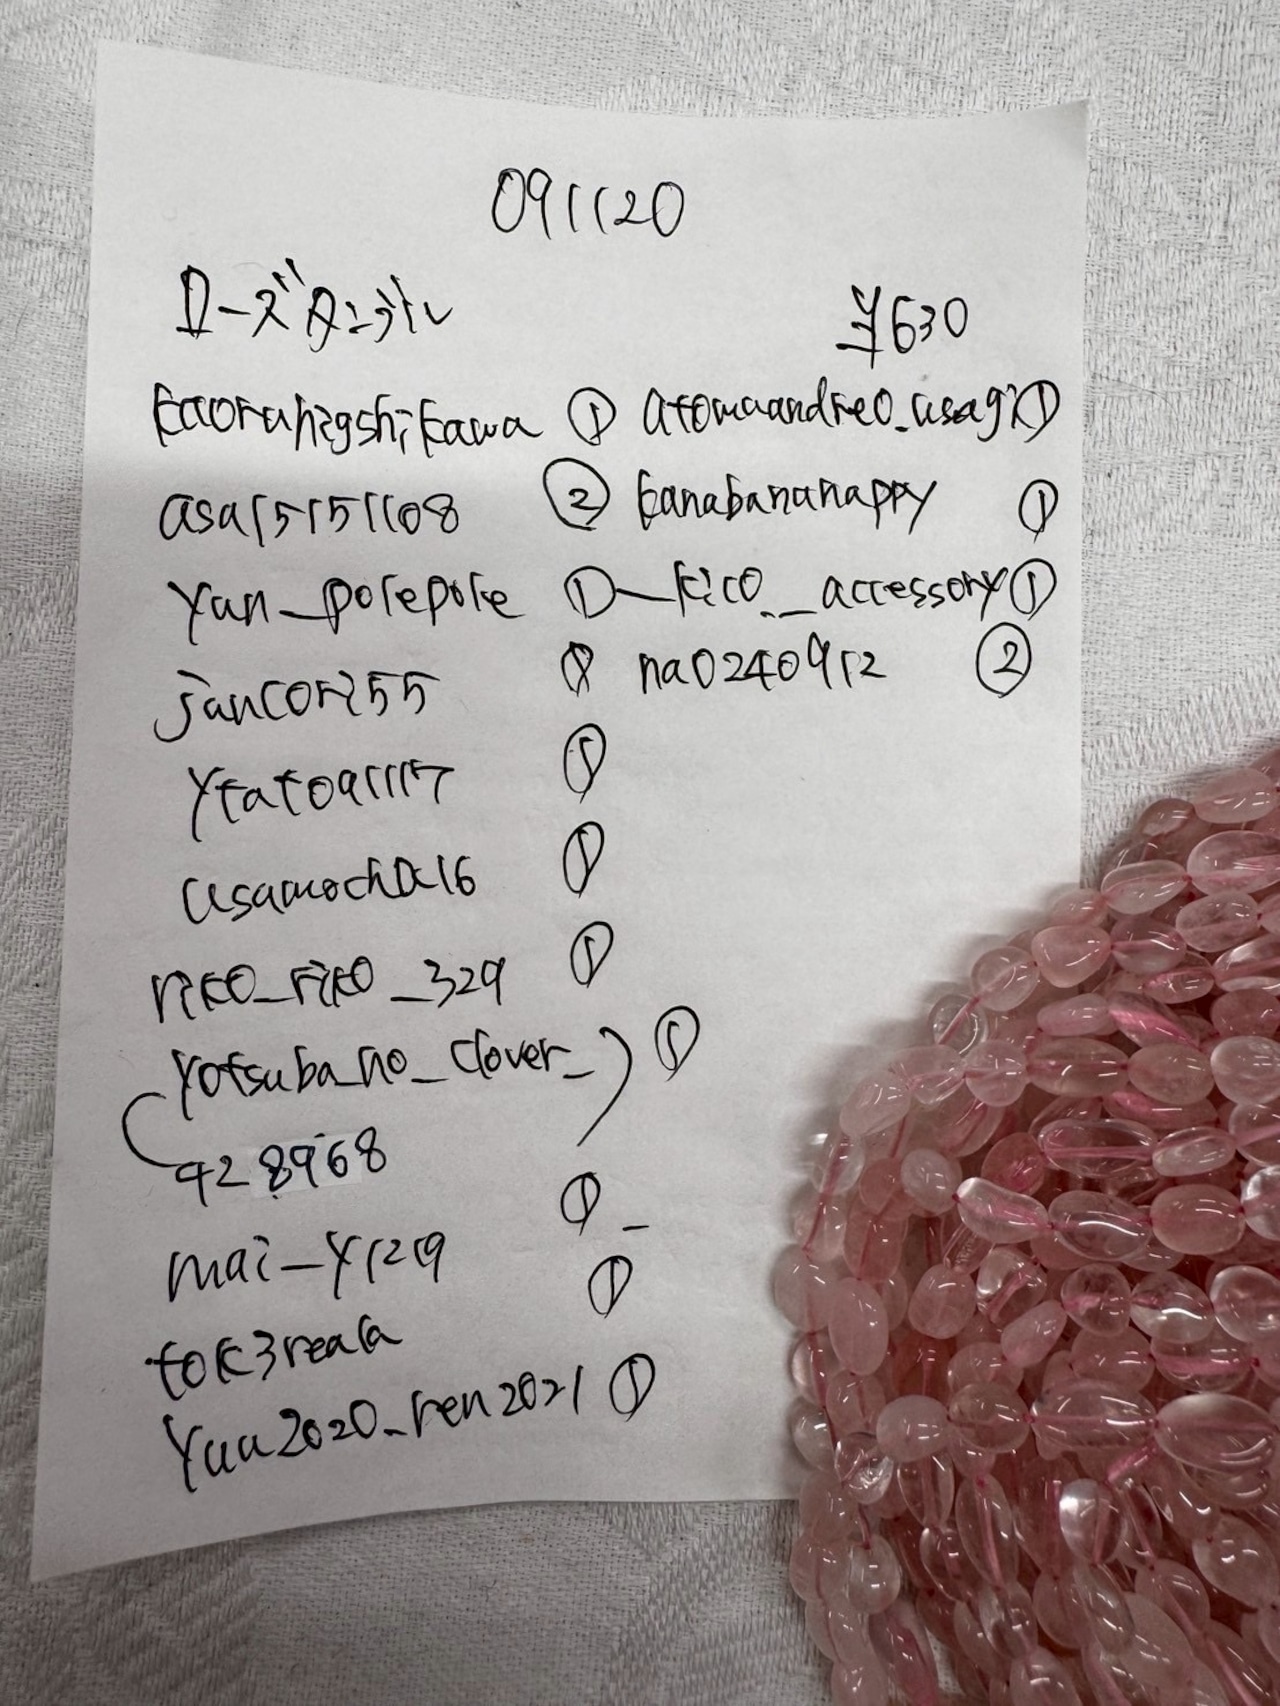 091120
ローズタンブル ¥630
kaoruhigshikawa ① atomuandreo_usagi ①
asa15151108 ② kanabananappy ①
yun_polepole ① _kico.__accessory ①
jancori55 ① na0240912 ②
ytato91117 ①
usamochi0416 ①
riko_riko_329 ①
yotsuba_no_clover_ ①
428968
mai_y1219 ①
tok3reala ①
yuu2020_ren2021 ①